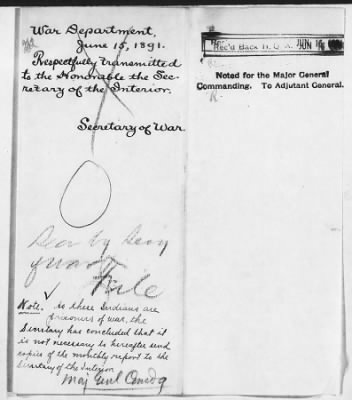 War Department,
June 15, 1891.
Respectfully transmitted
to the Honorable the Sec-
retary of the Interior.
Secretary of War.
Seen by Secy
of War
File
Note. As these Indians are
prisoners of war, the
Secretary has concluded that it
is not necessary to hereafter send
copies of the monthly report to the
Secretary of the Interior
Maj Genl Comdg
Rec'd Back H. Q. A. JUN
Noted for the Major General
Commanding. To Adjutant General.